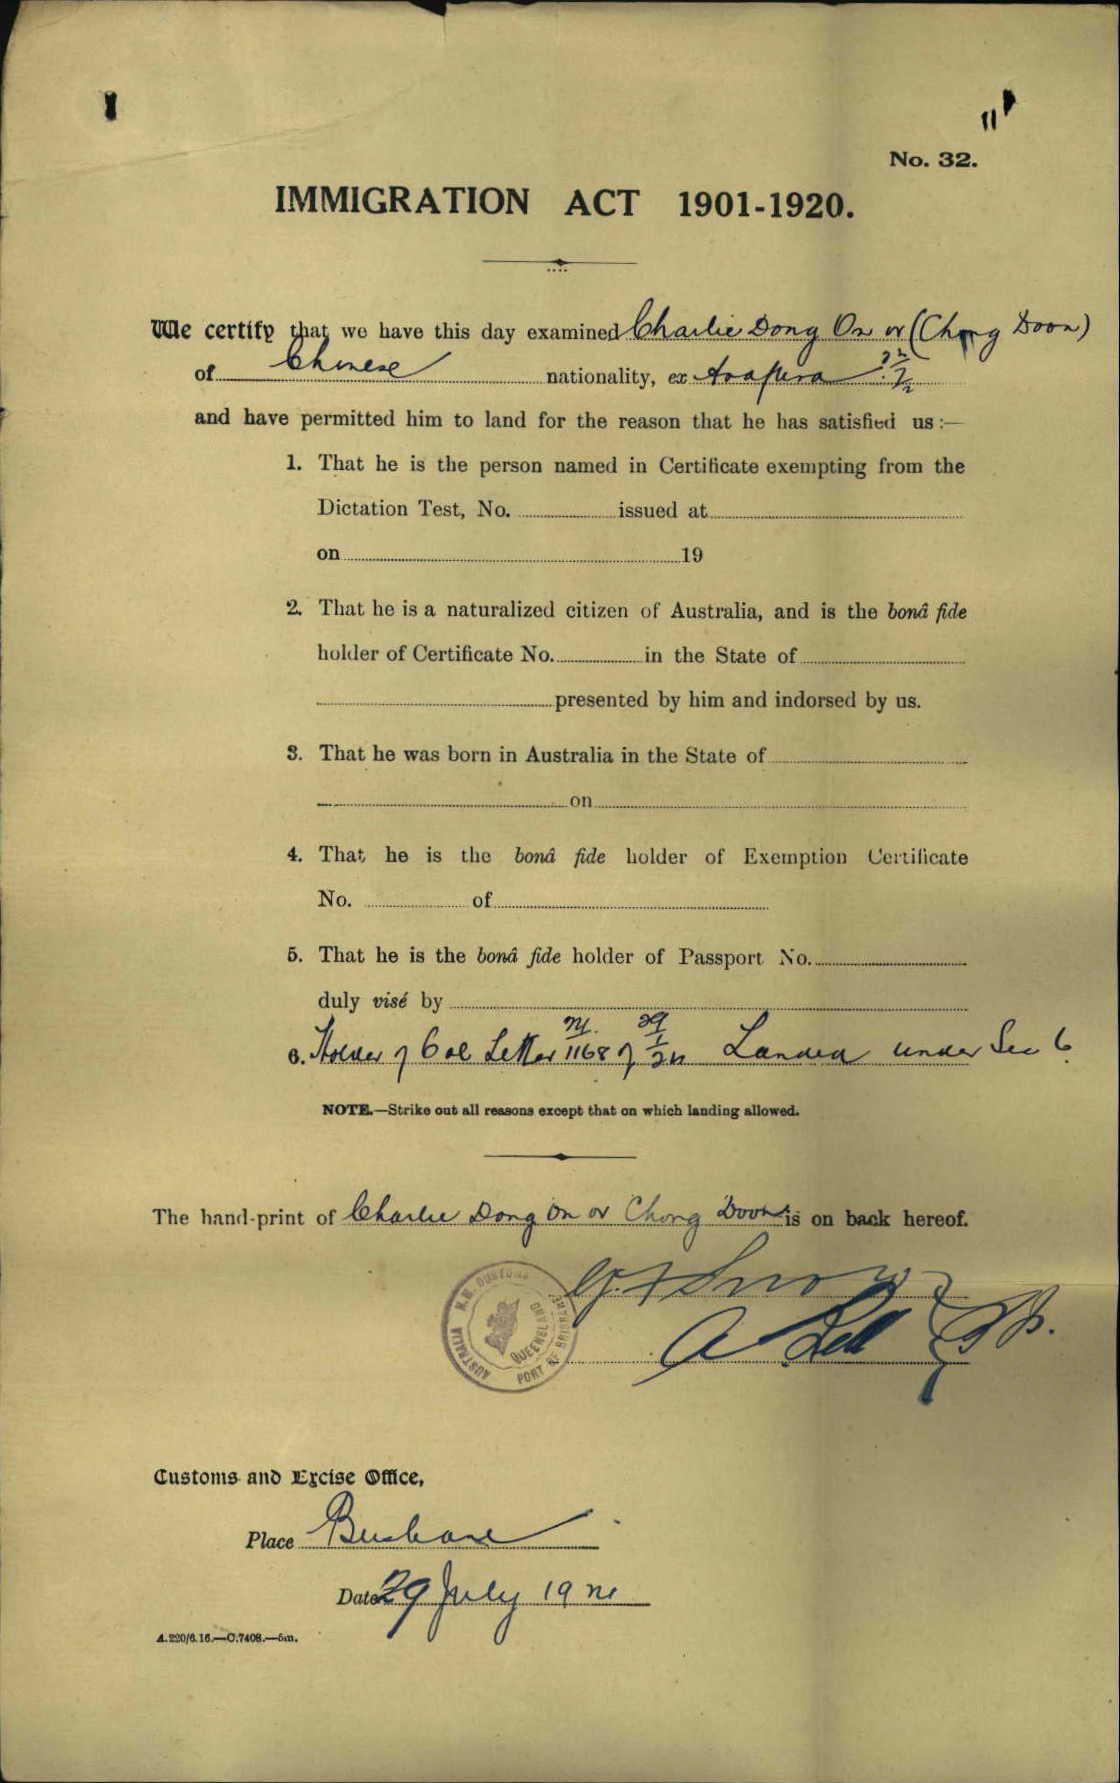 No. 32.
IMMIGRATION ACT 1901-1920.
We certify that we have this day examined Charlie Dong On or (Chong Doon)
of Chinese nationality, ex Arafura
and have permitted him to land for the reason that he has satisfied us:—
1. That he is the person named in Certificate exempting from the
Dictation Test, No. issued at
on 19
2. That he is a naturalized citizen of Australia, and is the bonâ fide
holder of Certificate No. in the State of
presented by him and indorsed by us.
3. That he was born in Australia in the State of
on
4. That he is the bonâ fide holder of Exemption Certificate
No. of
5. That he is the bonâ fide holder of Passport No.
duly visé by
6. Holder of Col Letter 1168 of Landed under Sec 6
NOTE.—Strike out all reasons except that on which landing allowed.
The hand-print of Charlie Dong On or Chong Doon is on back hereof.
H.M. CUSTOMS
AUSTRALIA
QUEENSLAND
PORT OF BRISBANE
A Bell
Customs and Excise Office,
Place Brisbane
Date 29 July 19
A.220/6.16.—C.7408.—5m.